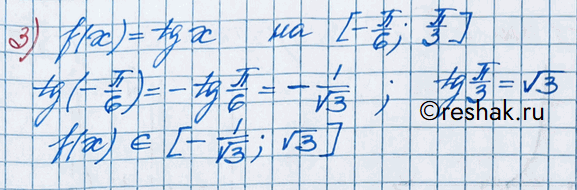 3) f(x) = tg x на [-π/6; π/3]
tg(-π/6) = -tg π/6 = -1/√3 ; tg π/3 = √3
f(x) ∈ [-1/√3; √3]
©reshak.ru